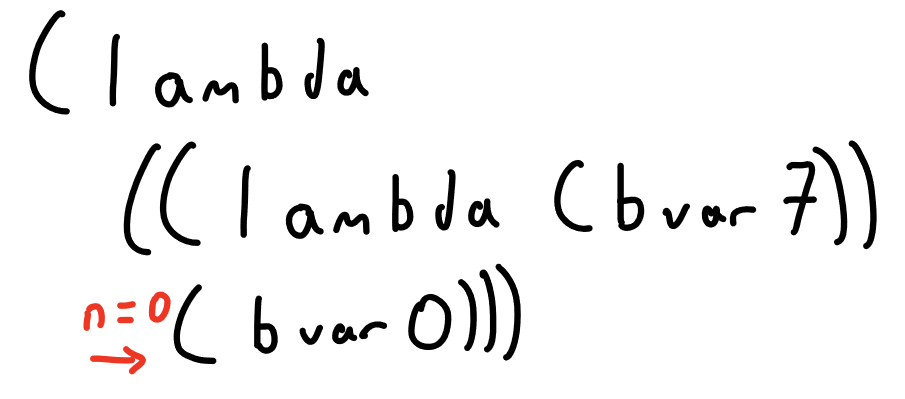 (lambda
((lambda (bvar 7))
n=0 (bvar 0)))
→